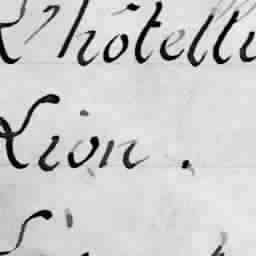 L'hôtelli
Lion.